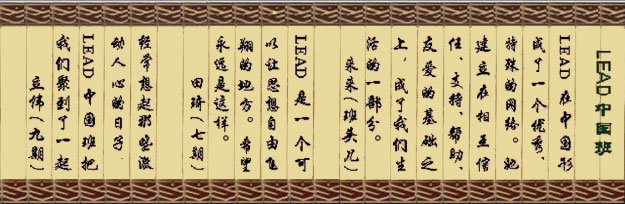 LEAD中国班
LEAD 在中国形
成了一个优秀、
特殊的网络。她
建立在相互信
任、支持、帮助、
友爱的基础之
上，成了我们生
活的一部分。
朱朱（班头儿）
LEAD 是一个可
以让思想自由飞
翔的地方。希望
永远是这样。
田琦（七期）
经常想起那些激
动人心的日子
LEAD 中国班把
我们聚到了一起
立伟（九期）